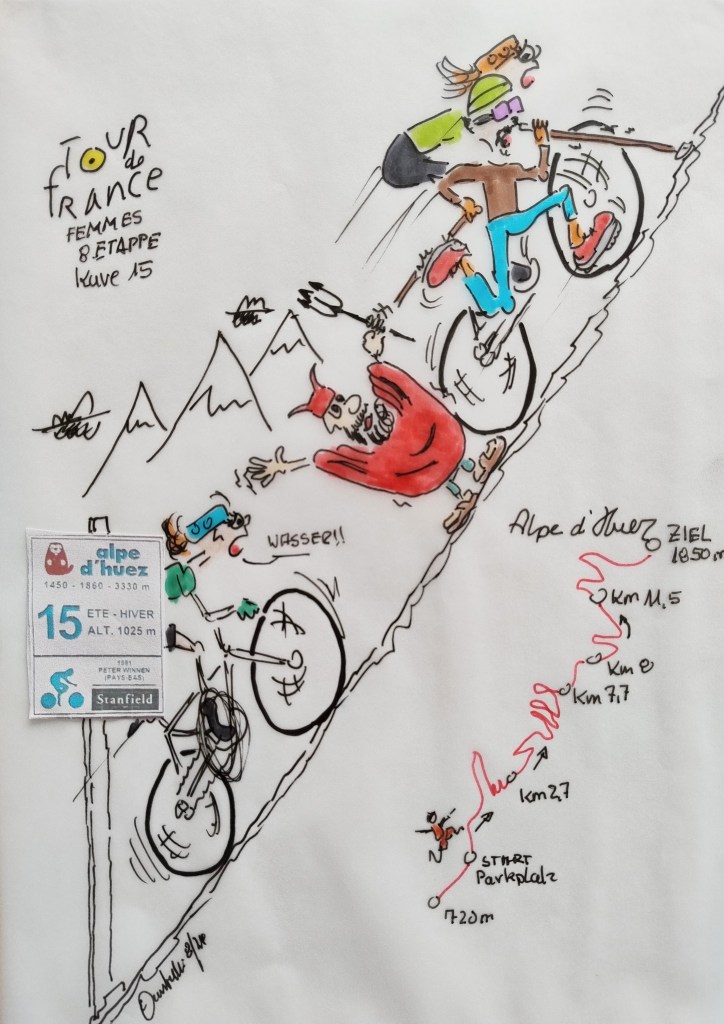 TOUR
de
fRANCE
FEMMES
8.ETAPPE
Kuve 15
WASSER!!
alpe
d'huez
1450 - 1860 - 3330 m
15
ETE - HIVER
ALT. 1025 m
1981
PETER WINNEN
(PAYS-BAS)
Stanfield
Alpe d'Huez
ZIEL
1850 m
Km 11,5
Km 8
Km 7,7
Km 2,7
START
Parkplatz
720 m
8/24